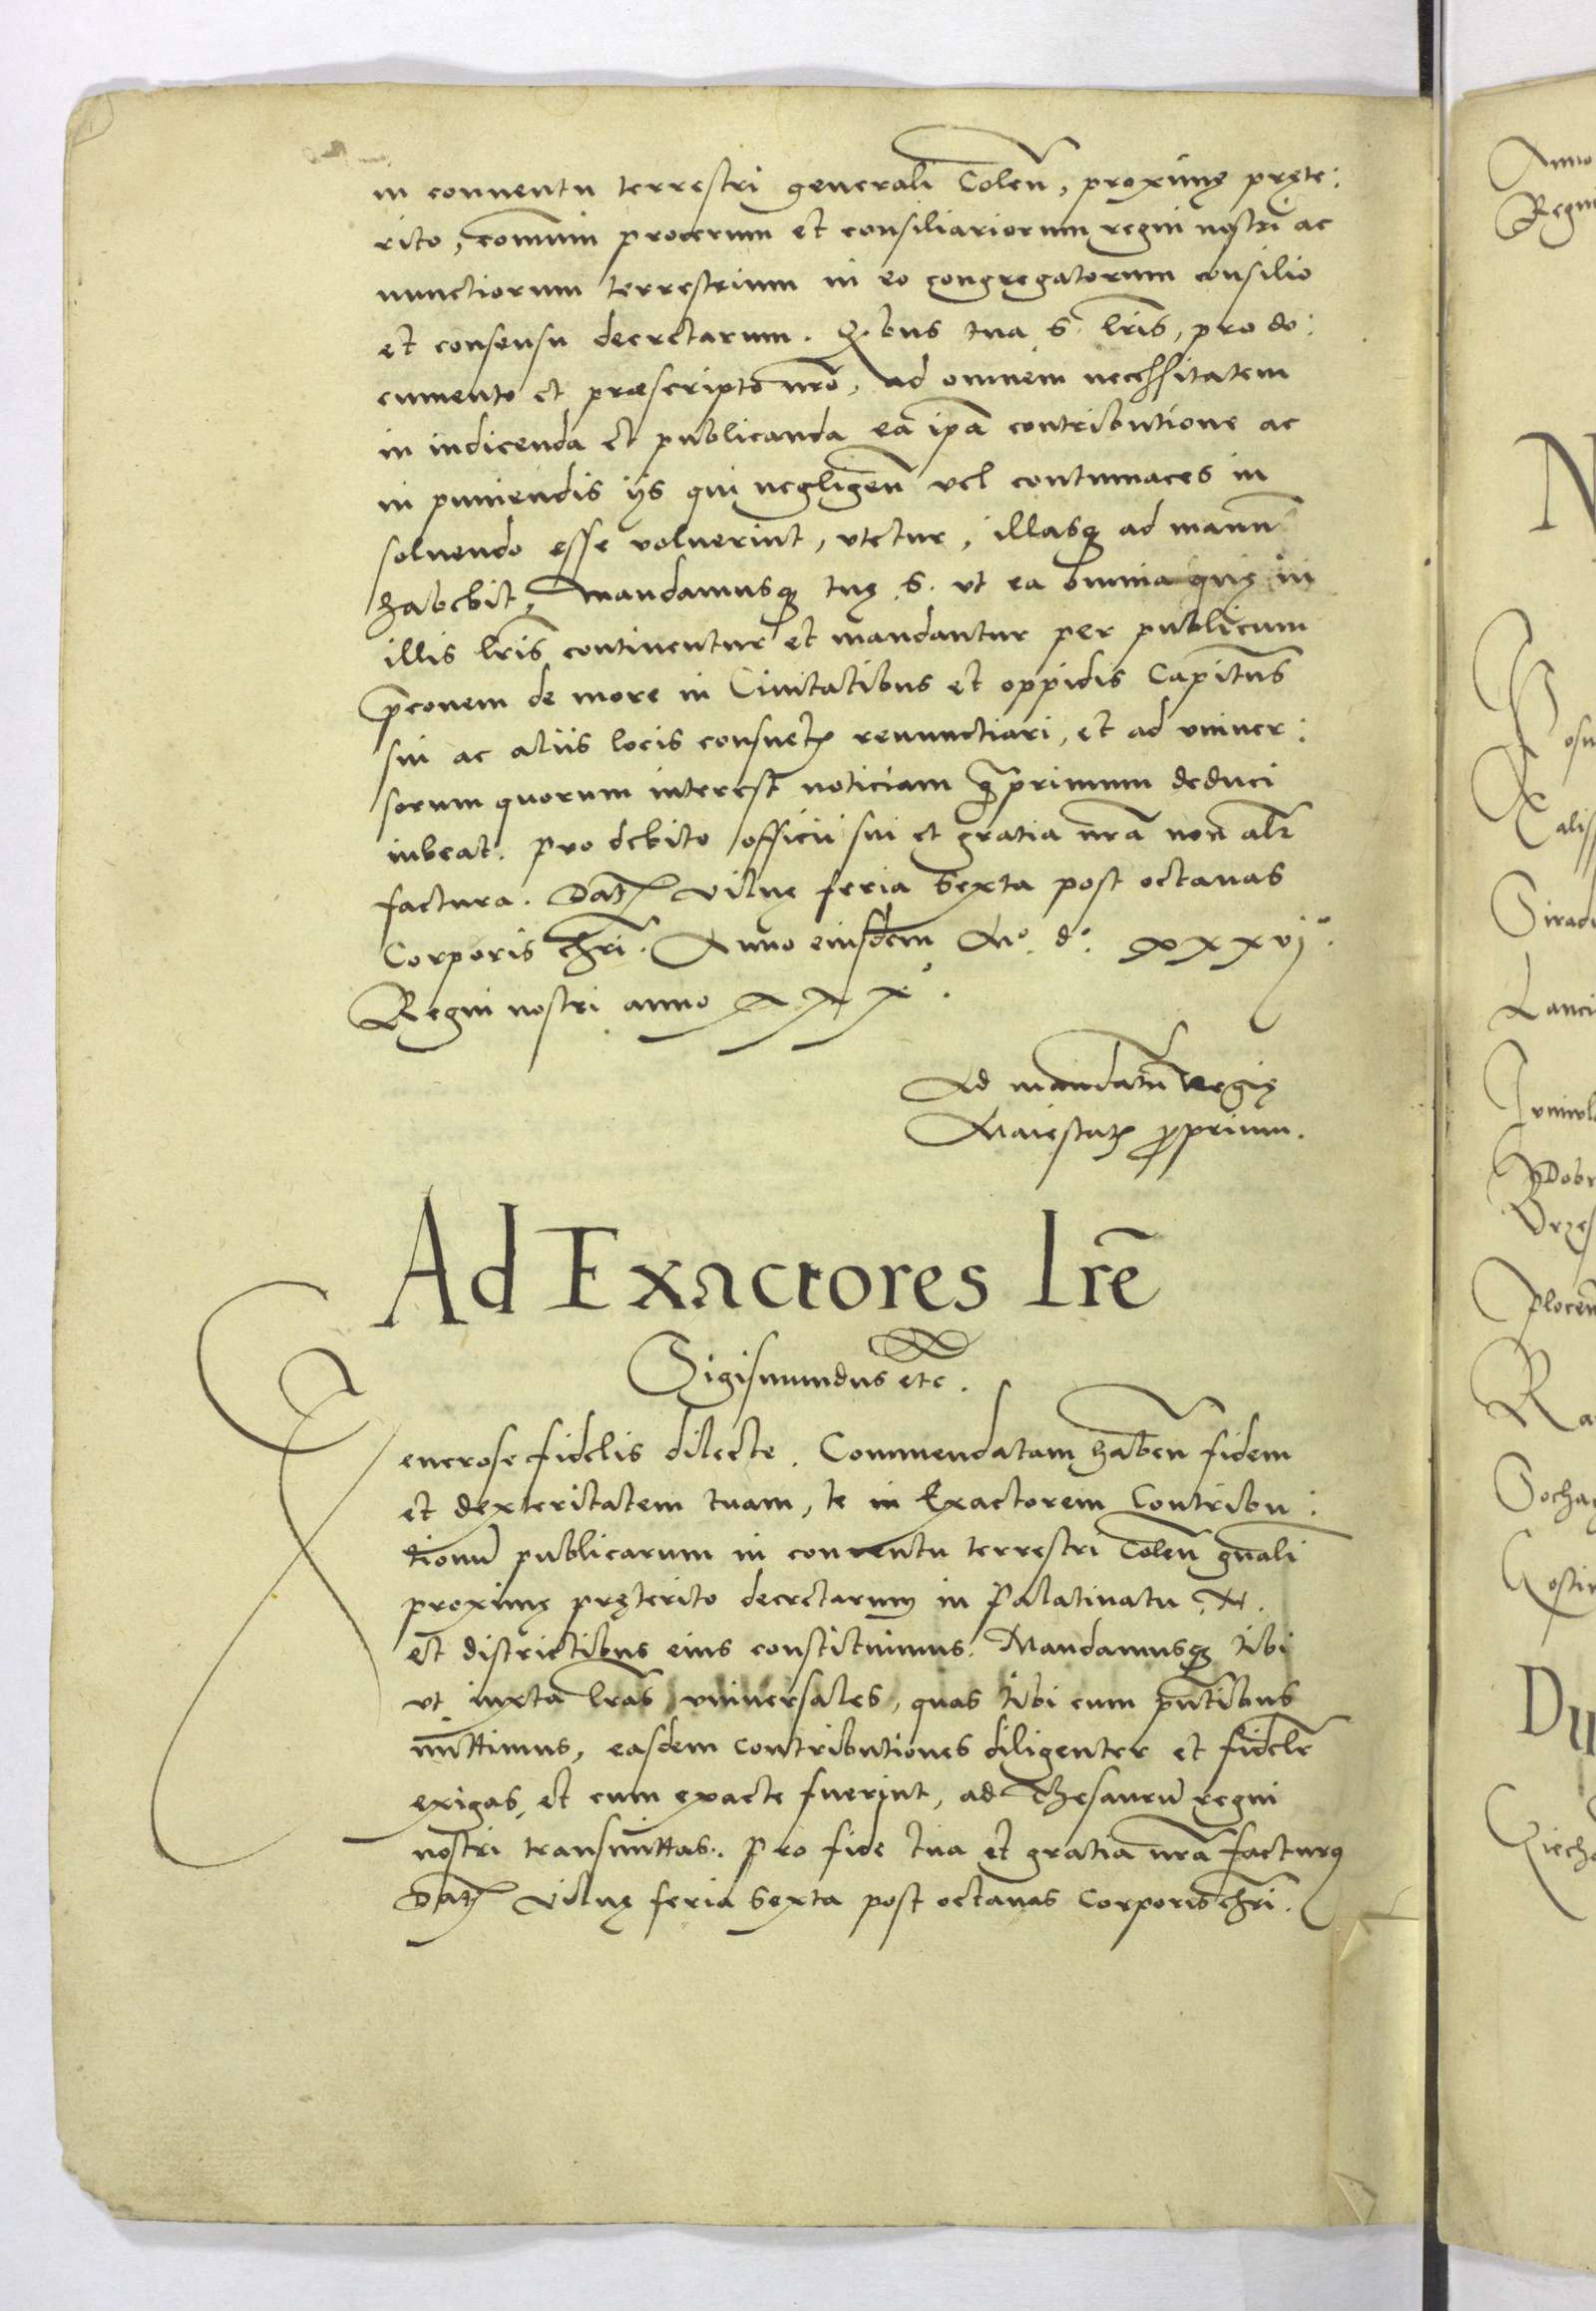 in conuentu terrestri generali Colen̄, proximę pręte:
rito, com̄uni procerum et consiliariorum regni nostri ac
nunctiorum terrestrium in eo congregatorum consilio
et consensu decretarum. Qibus tua S. lr̄is, pro do:
cumento et præscripto nr̄o, ad omnem necessitatem
in indicenda et publicanda ea ip̄a contributione ac
in puniendis ijs qui negligen̄ vel contumaces in
soluendo esse voluerint, vtetur, illasqꝫ ad manū
habebit, mandamusqꝫ tuę S. vt ea omnia quę in
illis lr̄is continentur et mandantur per publicum
p̄conem de more in Ciuitatibus et oppidis Capitn̄s
sui ac aliis locis consuetꝭ renunctiari, et ad vniuer:
sorum quorum interest noticiam q̄primum deduci
iubeat. Pro debito officii sui et gratia nr̄a non alr̄
factura. Datꝭ Vilnę feria Sexta post octauas
Corporis chr̄i. Anno eiusdem Mº. dº. xxxvjº.
Regni nostri anno xxxº.
Ad mandatū Regię
Maiestatꝭ ꝓprium.
Ad Exactores lr̄e
Sigismundus etc.
Generose fidelis dilecte. Commendatam haben̄ fidem
et dexteritatem tuam, te in Exactorem Contribu:
tionū publicarum in conuentu terrestri Colen̄ gn̄ali
proximę pręterito decretarum in Palatinatu N.
et districtibus eius constituimus. Mandamusqꝫ tibi
vt iuxta lr̄as vniuersales, quas tibi cum pn̄tibus
mittimus, easdem contributiones diligenter et fidelr̄
exigas, et cum exacte fuerint, ad Thesaurū regni
nostri transmittas. Pro fide tua et gratia nr̄a facturꝰ
Datꝭ Vilnę feria Sexta post octauas Corporis chr̄i.
Anno
Regni
N
Posn
Calis
Sirad
Lanci
Dobr
Brzes
Plocen̄
Ra
Socha
Gostin
Du
Ciecha